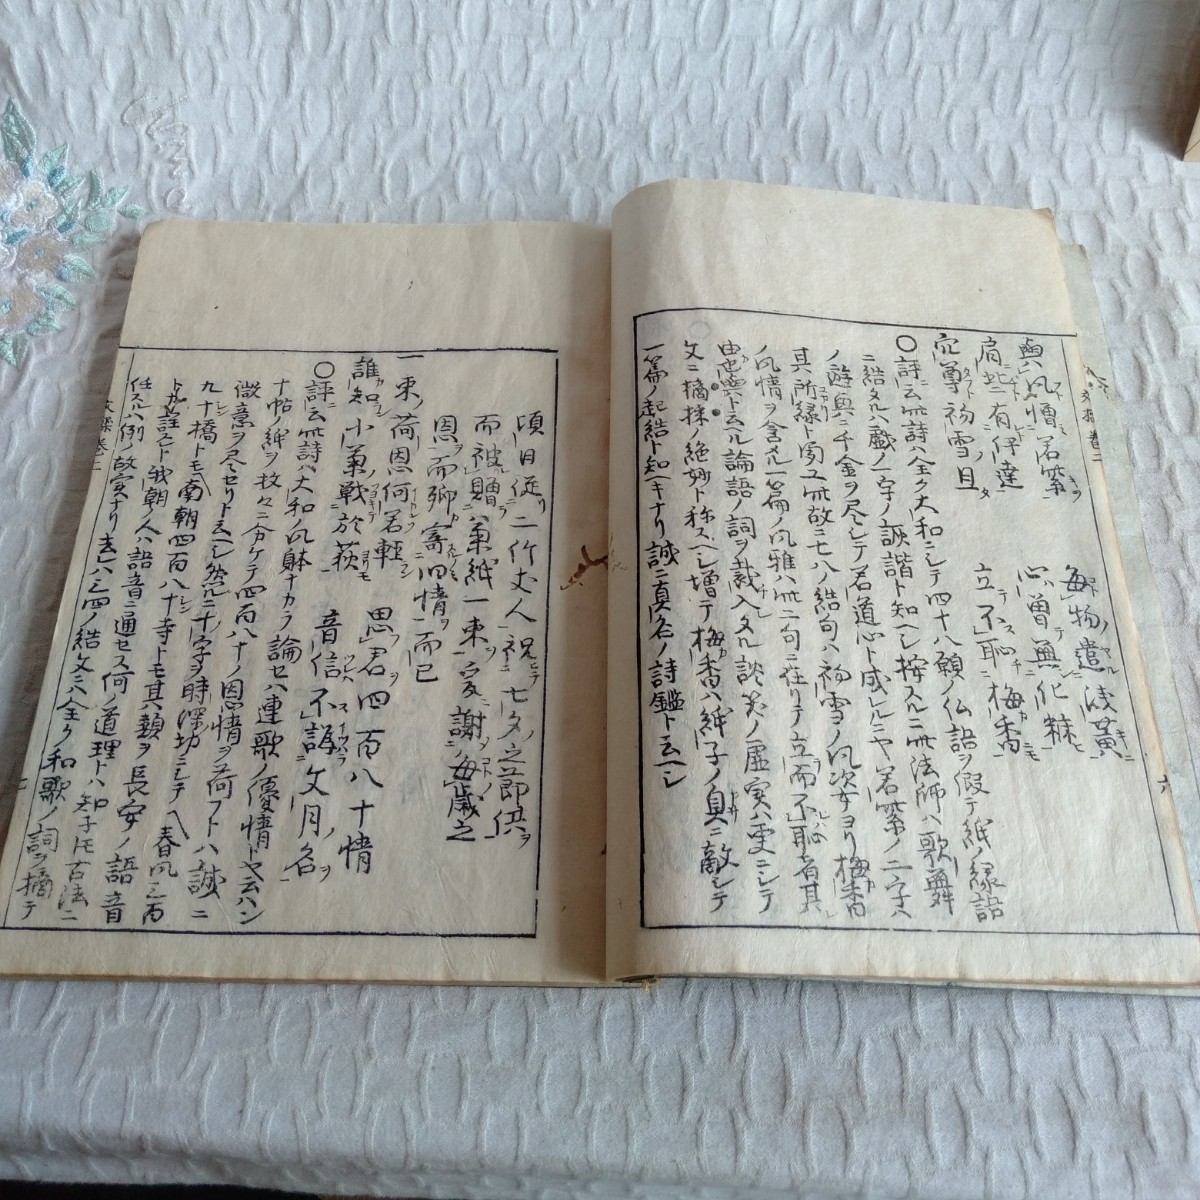 興ハ風増若紫 毎物遣浅黄
肩生有伊達 心曽無化粧
寍尊初雪旦 立不恥梅香
〇評ニ云此詩ハ全ク大和ニシテ四十八願ノ仏語ヲ假テ紙ノ縁語
ニ結タルハ戯ノ一字ノ誹諧ト知ヘシ按スルニ此法師ハ歌舞
ノ遊興ニ千金ヲ尽シテ若道心ト成レルニヤ若紫ノ二字ハ
其所縁ト
ノ風情ヲ含メル一篇ノ風雅ハ此ニ句ニ在リテ立而不恥者其
由也與ト云ヘル論語ノ詞ヲ裁入タル談笑ノ虚実ハ更ニシテ
文ニ摘採ノ絶妙ト称スヘシ増テ梅香ハ紙子ノ臭ニ敵シテ
一篇ノ起結ト知ヘキナリ誠ニ真名ノ詩鑑ト云ヘシ
六
頃日従二竹丈人祝七夕之節供
而被贈菓紙一束爰謝毎歳之
恩而聊寄四情而已
一束荷恩何若軽 思君四百八十情
誰知小菊戦於荻 音信不誤文月名
〇評ニ云此詩ハ大和ノ風躰ナカラ論セハ連歌ノ優情トヤ云ハン
十帖ノ紙ヲ枚々ニ分ケテ四百八十ノ恩情ヲ荷フトハ誠ニ
微意ヲ尽セリト云ヘシ然ルニ十ノ字ヲ時澤切ニシテ春風三百
九十橋トモ南朝四百八十寺トモ其類ヲ長安ノ語音
ト註スレト我朝ノ人ハ語音ニ通セス何ノ道理トハ知子トモ古法ニ
任スルハ例ノ故実ナリ去レハ三四ノ結文ハ全ク和歌ノ詞ヲ摘テ